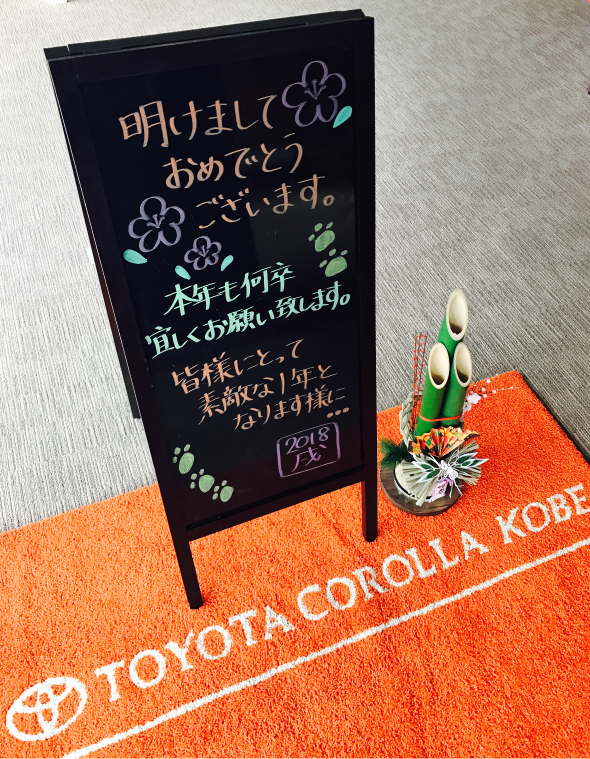 明けまして
おめでとう
ございます。
本年も何卒
宜しくお願い致します。
皆様にとって
素敵な1年と
なります様に...
2018
戌
TOYOTA COROLLA KOBE